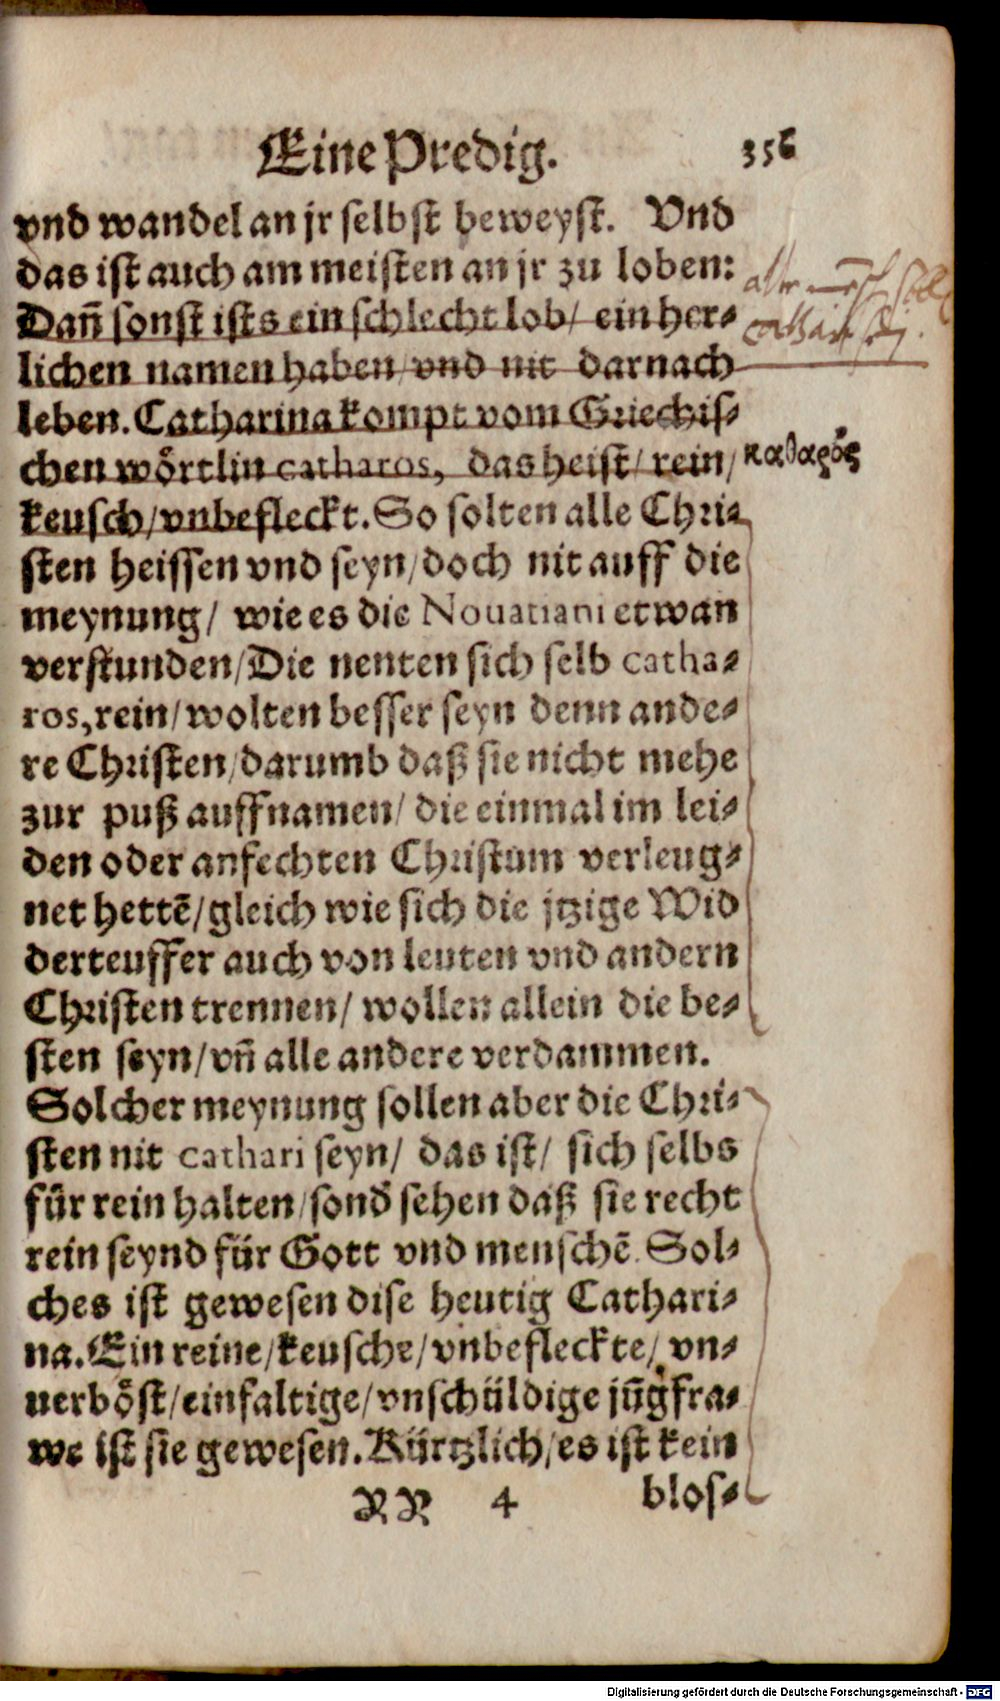 Eine Predig. 356
vnd wandel an jr selbst beweyst. Vnd
das ist auch am meisten an jr zu loben:
Dañ sonst ists ein schlecht lob/ ein her⸗
lichen namen haben/ vnd nit darnach
leben. Catharina kompt vom Griechis⸗
chen wörtlin catharos, das heist/ rein/ καθαρός
keusch/ vnbefleckt. So solten alle Chri⸗
sten heissen vnd seyn/ doch nit auff die
meynung/ wie es die Nouatiani etwan
verstunden/ Die nenten sich selb catha⸗
ros, rein/ wolten besser seyn denn ande⸗
re Christen/ darumb daß sie nicht mehe
zur puß auffnamen/ die einmal im lei⸗
den oder anfechten Christum verleug⸗
net hettē/ gleich wie sich die jtzige Wid
derteuffer auch von leuten vnd andern
Christen trennen/ wollen allein die be⸗
sten seyn/ vñ alle andere verdammen.
Solcher meynung sollen aber die Chri⸗
sten nit cathari seyn/ das ist/ sich selbs
für rein halten/ sond̓ sehen daß sie recht
rein seynd für Gott vnd menschē. Sol⸗
ches ist gewesen dise heutig Cathari⸗
na. Ein reine/ keusche/ vnbefleckte/ vn⸗
uerböst/ einfaltige/ vnschüldige jũgfra⸗
we ist sie gewesen. Kürtzlich/ es ist kein
RR 4 blos⸗
Digitalisierung gefördert durch die Deutsche Forschungsgemeinschaft - DFG